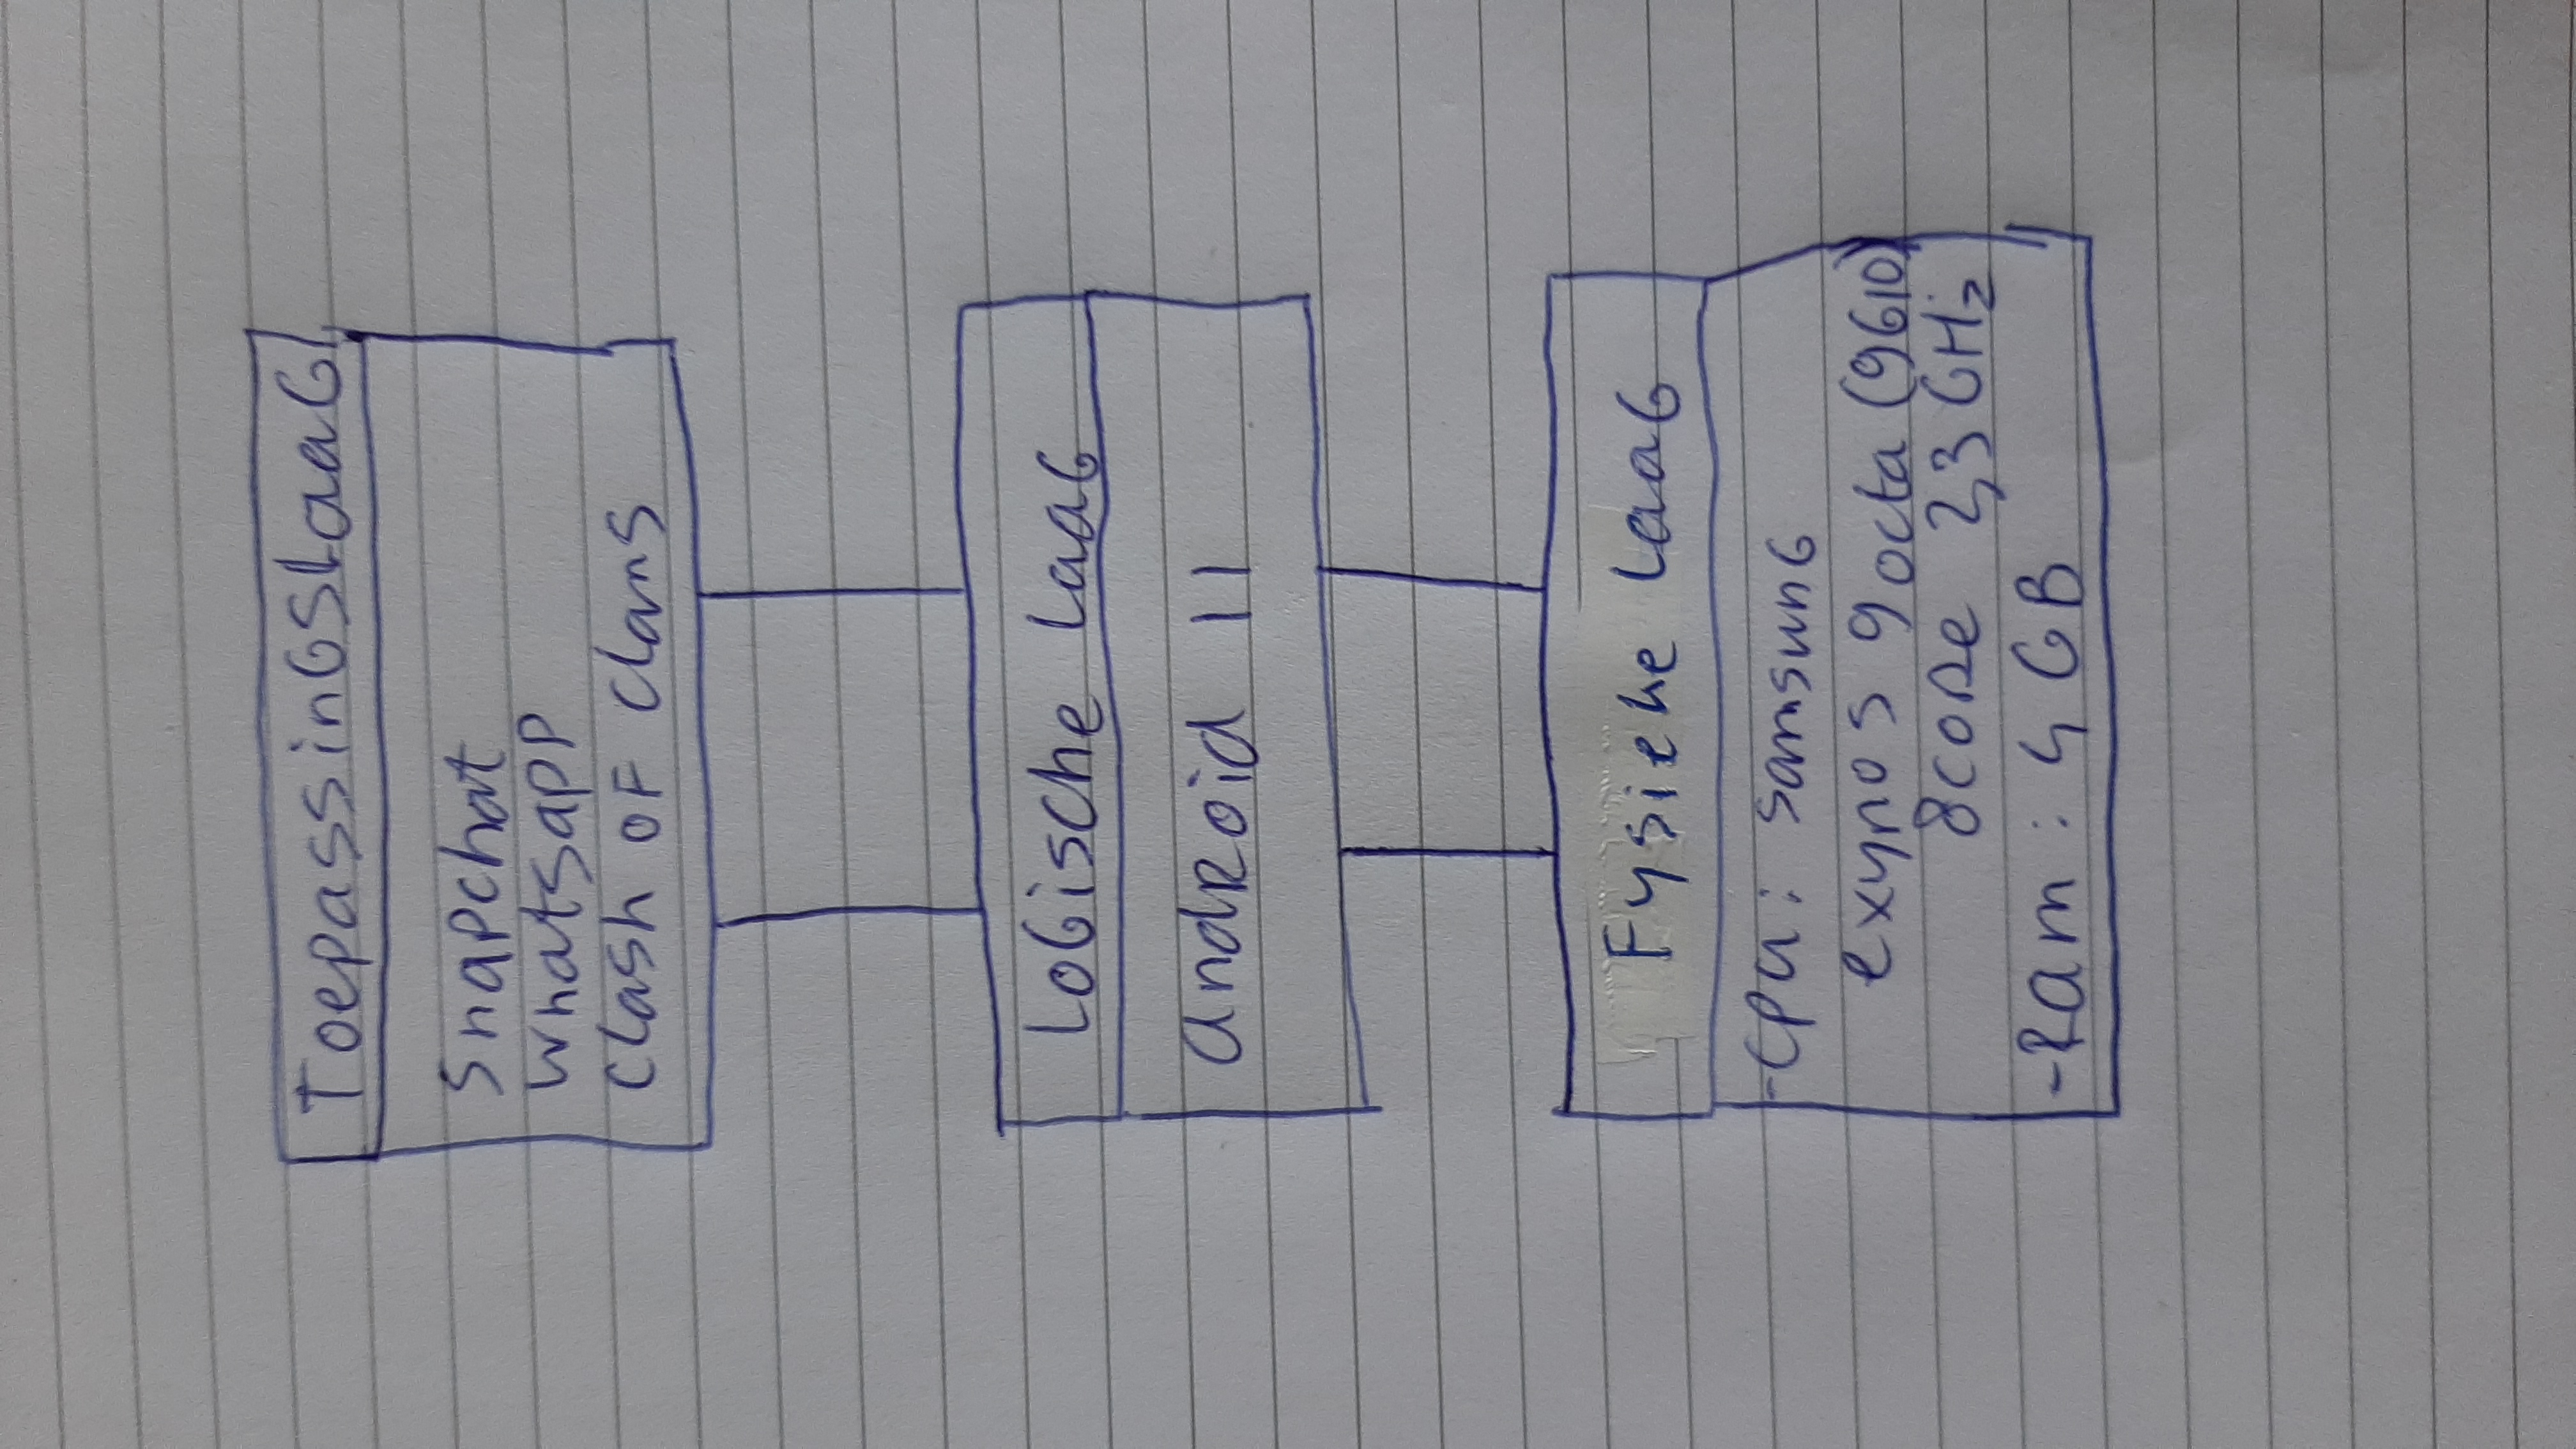 ToepassinGslaaG
Snapchat
whatsapp
Clash of Clans
LoGische laaG
android 11
Fysieke laaG
-cpu: samsunG
exynos 9 octa (9610)
8core 2,3 GHz
-Ram: 4 GB